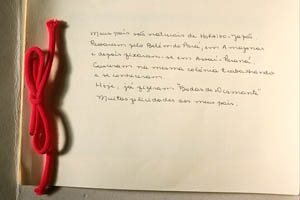 Meus pais são naturais de Hokaido-Japão
Passaram pelo Belém do Pará, em Amazonas
e depois fixaram-se em Assaí-Paraná.
Casaram na mesma colônia trabalhando
e se conheceram.
Hoje, já fizeram "Bodas de Diamante"
Muitas felicidades aos meus pais.